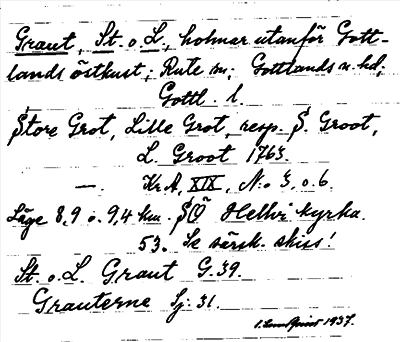 Graut, St. o. L., holmar utanför Gott-
lands östkust; Rute sn; Gottlands n. hd;
Gottl. l.
Store Grot, Lille Grot, resp. S. Groot,
L. Groot 1763.
—. Kr.A, XIX, N:o 3, o. 6.
Läge 8,9 o. 9,4 km. SÖ Hellvi kyrka.
53. Se särsk. skiss!
St. o. L. Graut G. 39.
Grauterne Sj: 31.
1937.